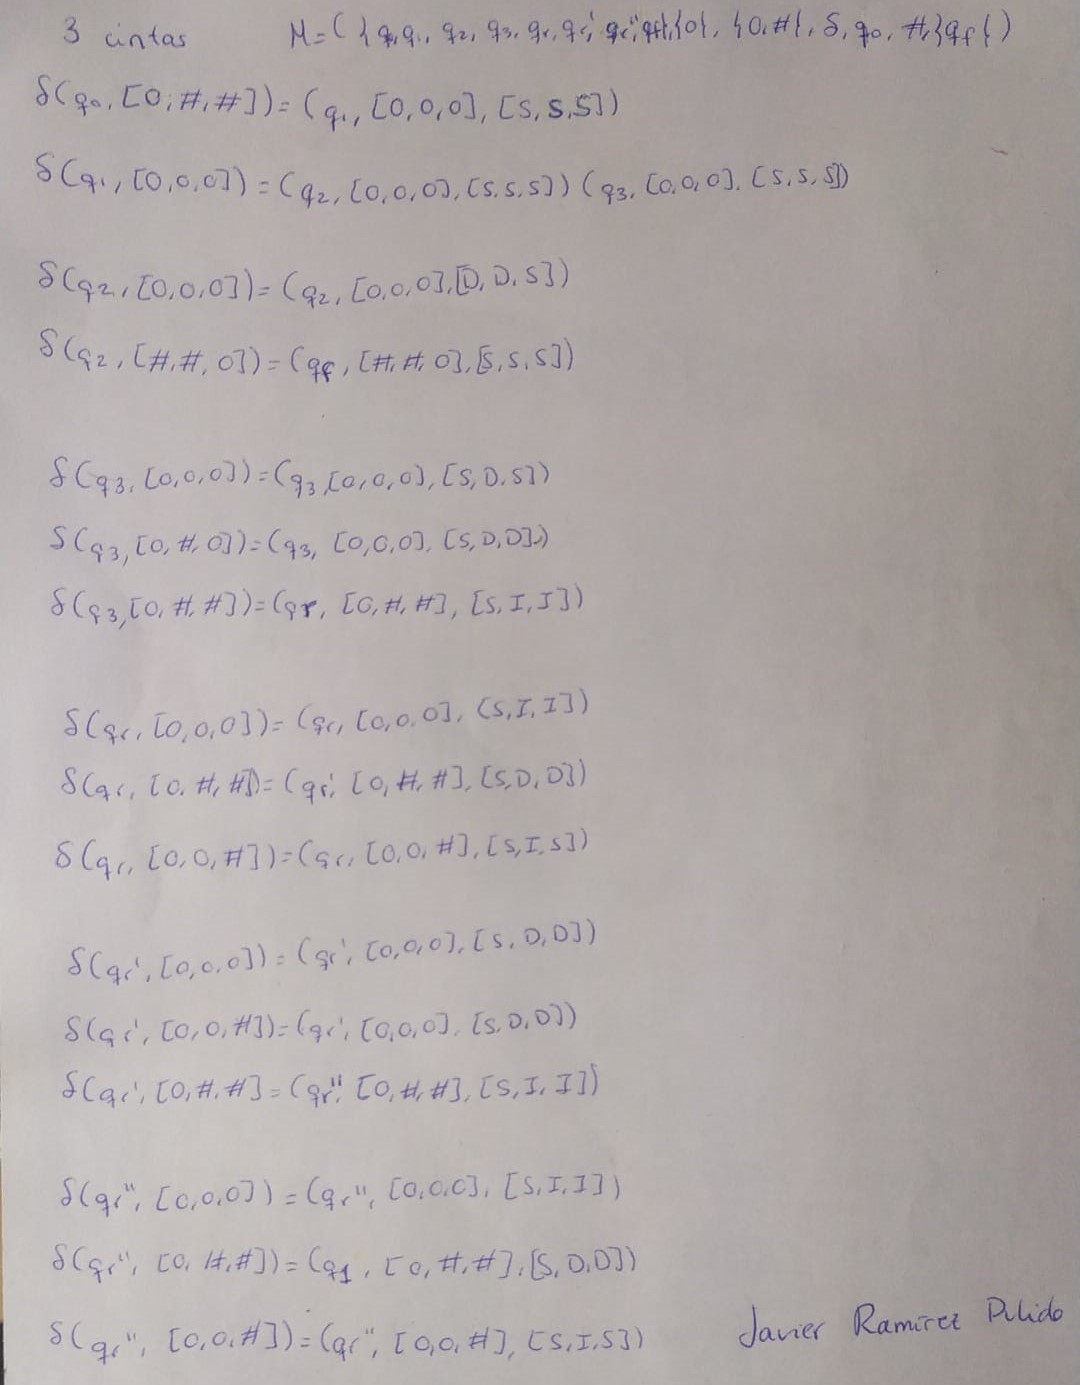 3 cintas M=({q0,q1, q2, q3, qr, qr', qr'', qf},{0}, {0,#}, δ, q0, #,{qf})
δ(q0, [0,#,#])=(q1, [0,0,0], [S,S,S])
δ(q1, [0,0,0])=(q2, [0,0,0], [S,S,S]) (q3, [0,0,0], [S,S,S])
δ(q2, [0,0,0])=(q2, [0,0,0],[D,D,S])
δ(q2, [#,#,0])=(qf, [#,#,0],[S,S,S])
δ(q3, [0,0,0])=(q3,[0,0,0], [S,D,S])
δ(q3,[0,#,0])=(q3, [0,0,0], [S,D,D])
δ(q3,[0,#,#])=(qr, [0,#,#], [S,I,I])
δ(qr, [0,0,0])=(qr, [0,0,0], [S,I,I])
δ(qr, [0,#,#])=(qr', [0,#,#], [S,D,D])
δ(qr, [0,0,#])=(qr, [0,0,#], [S,I,S])
δ(qr', [0,0,0])=(qr', [0,0,0], [S,D,D])
δ(qr', [0,0,#])=(qr', [0,0,0], [S,D,D])
δ(qr', [0,#,#]=(qr'', [0,#,#], [S,I,I])
δ(qr'', [0,0,0])=(qr'', [0,0,0], [S,I,I])
δ(qr'', [0,#,#])=(q1, [0,#,#],[S,D,D])
δ(qr'', [0,0,#])=(qr'', [0,0,#], [S,I,S])
Javier Ramírez Pulido